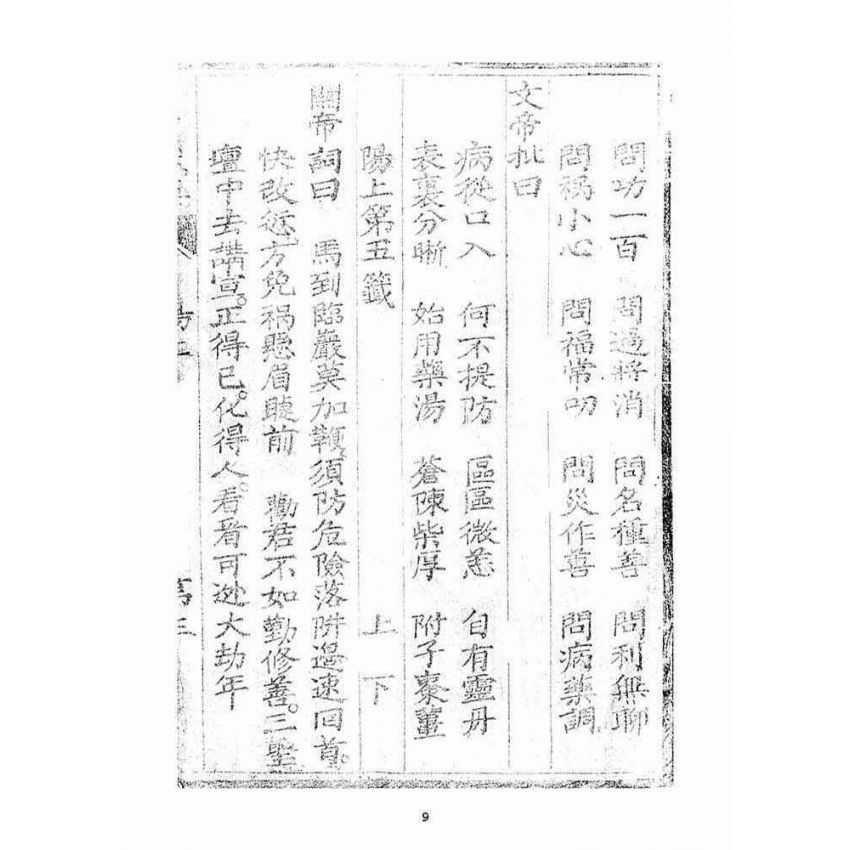 問功一百 問過將消 問名種善 問利無聊
問禍小心 問福常叨 問災作善 問病藥調
文帝批曰
病從口入 何不提防 區區微恙 自有靈丹
表裏分晰 始用藥湯 蒼陳柴厚 附子棗薑
陽上第五籤 上 下
關帝詞曰 馬到臨巖莫加鞭。須防危險落阱邊速回首。
快改近。方免禍懸眉睫前 勸君不如勤修善。三聖
壇中去講宣。正得已。化得人。看看可逃大劫年
9